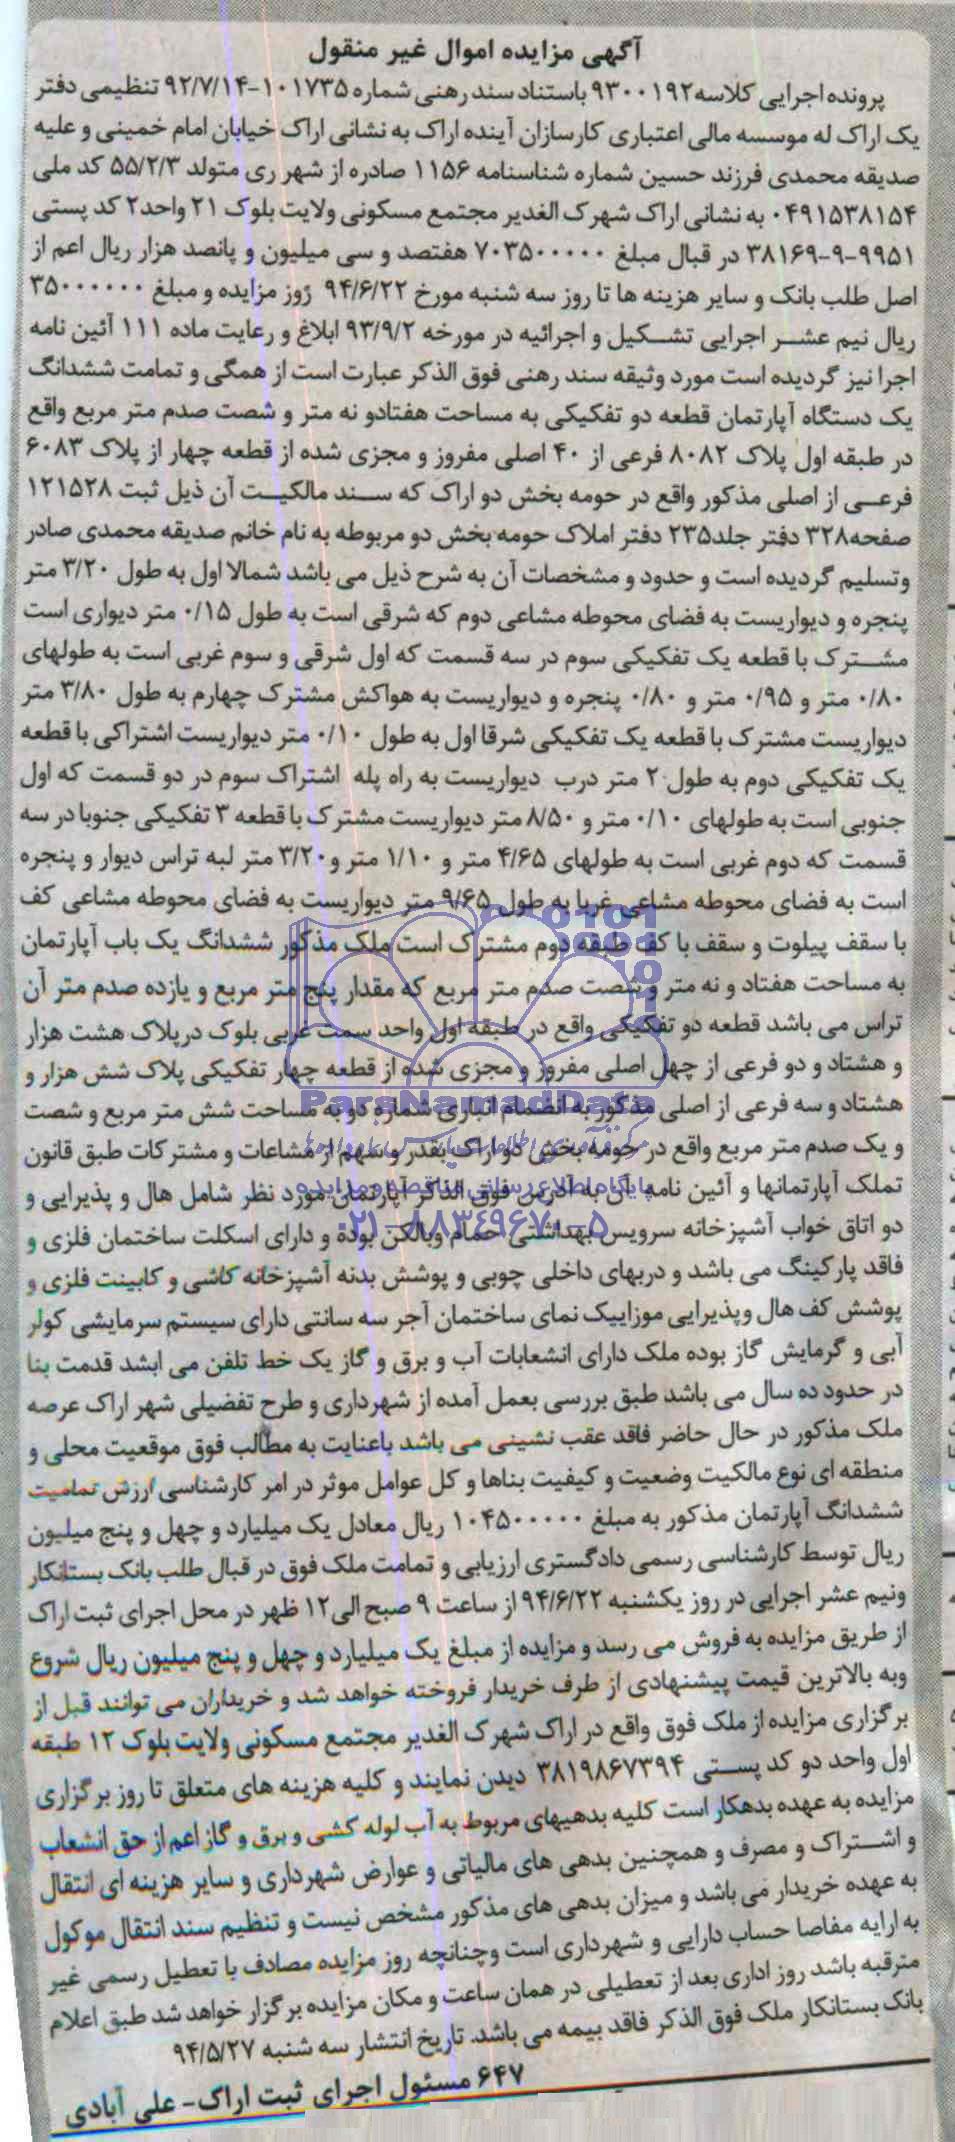 آگهی مزایده اموال غیر منقول
پرونده اجرایی کلاسه ۹۳۰۰۱۹۲ باستناد سند رهنی شماره ۱۰۱۷۳۵-۹۲/۷/۱۴ تنظیمی دفتر
یک اراک له موسسه مالی اعتباری کارسازان آینده اراک به نشانی اراک خیابان امام خمینی و علیه
صدیقه محمدی فرزند حسین شماره شناسنامه ۱۱۵۶ صادره از شهر ری متولد ۵۵/۲/۳ کد ملی
۰۴۹۱۵۳۸۱۵۴ به نشانی اراک شهرک الغدیر مجتمع مسکونی ولایت بلوک ۲۱ واحد۲ کد پستی
۳۸۱۶۹-۹-۹۹۵۱ در قبال مبلغ ۷۰۳۵۰۰۰۰۰ هفتصد و سی میلیون و پانصد هزار ریال اعم از
اصل طلب بانک و سایر هزینه ها تا روز سه شنبه مورخ ۹۴/۶/۲۲ روز مزایده و مبلغ ۳۵۰۰۰۰۰۰
ریال نیم عشر اجرایی تشکیل و اجرائیه در مورخه ۹۳/۹/۲ ابلاغ و رعایت ماده ۱۱۱ آئین نامه
اجرا نیز گردیده است مورد وثیقه سند رهنی فوق الذکر عبارت است از همگی و تمامت ششدانگ
یک دستگاه آپارتمان قطعه دو تفکیکی به مساحت هفتادو نه متر و شصت صدم متر مربع واقع
در طبقه اول پلاک ۸۰۸۲ فرعی از ۴۰ اصلی مفروز و مجزی شده از قطعه چهار از پلاک ۶۰۸۳
فرعی از اصلی مذکور واقع در حومه بخش دو اراک که سند مالکیت آن ذیل ثبت ۱۲۱۵۲۸
صفحه۳۲۸ دفتر جلد۲۳۵ دفتر املاک حومه بخش دو مربوطه به نام خانم صدیقه محمدی صادر
وتسلیم گردیده است و حدود و مشخصات آن به شرح ذیل می باشد شمالا اول به طول ۳/۲۰ متر
پنجره و دیواریست به فضای محوطه مشاعی دوم که شرقی است به طول ۰/۱۵ متر دیواری است
مشترک با قطعه یک تفکیکی سوم در سه قسمت که اول شرقی و سوم غربی است به طولهای
۰/۸۰ متر و ۰/۹۵ متر و ۰/۸۰ پنجره و دیواریست به هواکش مشترک چهارم به طول ۳/۸۰ متر
دیواریست مشترک با قطعه یک تفکیکی شرقا اول به طول ۰/۱۰ متر دیواریست اشتراکی با قطعه
یک تفکیکی دوم به طول ۲ متر درب دیواریست به راه پله اشتراک سوم در دو قسمت که اول
جنوبی است به طولهای ۰/۱۰ متر و ۸/۵۰ متر دیواریست مشترک با قطعه ۳ تفکیکی جنوبا در سه
قسمت که دوم غربی است به طولهای ۴/۶۵ متر و ۱/۱۰ متر و۳/۲۰ متر لبه تراس دیوار و پنجره
است به فضای محوطه مشاعی غربا به طول ۹/۶۵ متر دیواریست به فضای محوطه مشاعی کف
با سقف پیلوت و سقف با کف طبقه دوم مشترک است ملک مذکور ششدانگ یک باب آپارتمان
به مساحت هفتاد و نه متر و شصت صدم متر مربع که مقدار پنج متر مربع و یازده صدم متر آن
تراس می باشد قطعه دو تفکیکی واقع در طبقه اول واحد سمت غربی بلوک درپلاک هشت هزار
و هشتاد و دو فرعی از چهل اصلی مفروز و مجزی شده از قطعه چهار تفکیکی پلاک شش هزار و
هشتاد و سه فرعی از اصلی مذکور به انضمام انباری شماره دو به مساحت شش متر مربع و شصت
و یک صدم متر مربع واقع در حومه بخش دو اراک بقدر و سهم از مشاعات و مشترکات طبق قانون
تملک آپارتمانها و آئین نامه آن به آدرس فوق الذکر آپارتمان مورد نظر شامل هال و پذیرایی و
دو اتاق خواب آشپزخانه سرویس بهداشتی حمام وبالکن بوده و دارای اسکلت ساختمان فلزی و
فاقد پارکینگ می باشد و دربهای داخلی چوبی و پوشش بدنه آشپزخانه کاشی و کابینت فلزی و
پوشش کف هال وپذیرایی موزاییک نمای ساختمان آجر سه سانتی دارای سیستم سرمایشی کولر
آبی و گرمایش گاز بوده ملک دارای انشعابات آب و برق و گاز یک خط تلفن می ابشد قدمت بنا
در حدود ده سال می باشد طبق بررسی بعمل آمده از شهرداری و طرح تفضیلی شهر اراک عرصه
ملک مذکور در حال حاضر فاقد عقب نشینی می باشد باعنایت به مطالب فوق موقعیت محلی و
منطقه ای نوع مالکیت وضعیت و کیفیت بناها و کل عوامل موثر در امر کارشناسی ارزش تمامیت
ششدانگ آپارتمان مذکور به مبلغ ۱۰۴۵۰۰۰۰۰۰ ریال معادل یک میلیارد و چهل و پنج میلیون
ریال توسط کارشناسی رسمی دادگستری ارزیابی و تمامت ملک فوق در قبال طلب بانک بستانکار
ونیم عشر اجرایی در روز یکشنبه ۹۴/۶/۲۲ از ساعت ۹ صبح الی۱۲ ظهر در محل اجرای ثبت اراک
از طریق مزایده به فروش می رسد و مزایده از مبلغ یک میلیارد و چهل و پنج میلیون ریال شروع
وبه بالاترین قیمت پیشنهادی از طرف خریدار فروخته خواهد شد و خریداران می توانند قبل از
برگزاری مزایده از ملک فوق واقع در اراک شهرک الغدیر مجتمع مسکونی ولایت بلوک ۱۲ طبقه
اول واحد دو کد پستی ۳۸۱۹۸۶۷۳۹۴ دیدن نمایند و کلیه هزینه های متعلق تا روز برگزاری
مزایده به عهده بدهکار است کلیه بدهیهای مربوط به آب لوله کشی و برق و گاز اعم از حق انشعاب
و اشتراک و مصرف و همچنین بدهی های مالیاتی و عوارض شهرداری و سایر هزینه ای انتقال
به عهده خریدار می باشد و میزان بدهی های مذکور مشخص نیست و تنظیم سند انتقال موکول
به ارایه مفاصا حساب دارایی و شهرداری است وچنانچه روز مزایده مصادف با تعطیل رسمی غیر
مترقبه باشد روز اداری بعد از تعطیلی در همان ساعت و مکان مزایده برگزار خواهد شد طبق اعلام
بانک بستانکار ملک فوق الذکر فاقد بیمه می باشد. تاریخ انتشار سه شنبه ۹۴/۵/۲۷
۶۴۷ مسئول اجرای ثبت اراک- علی آبادی
ParsNamadData
پایگاه اطلاع رسانی مناقصه و مزایده
۰۲۱-۸۸۳۴۹۶۷۰-۵